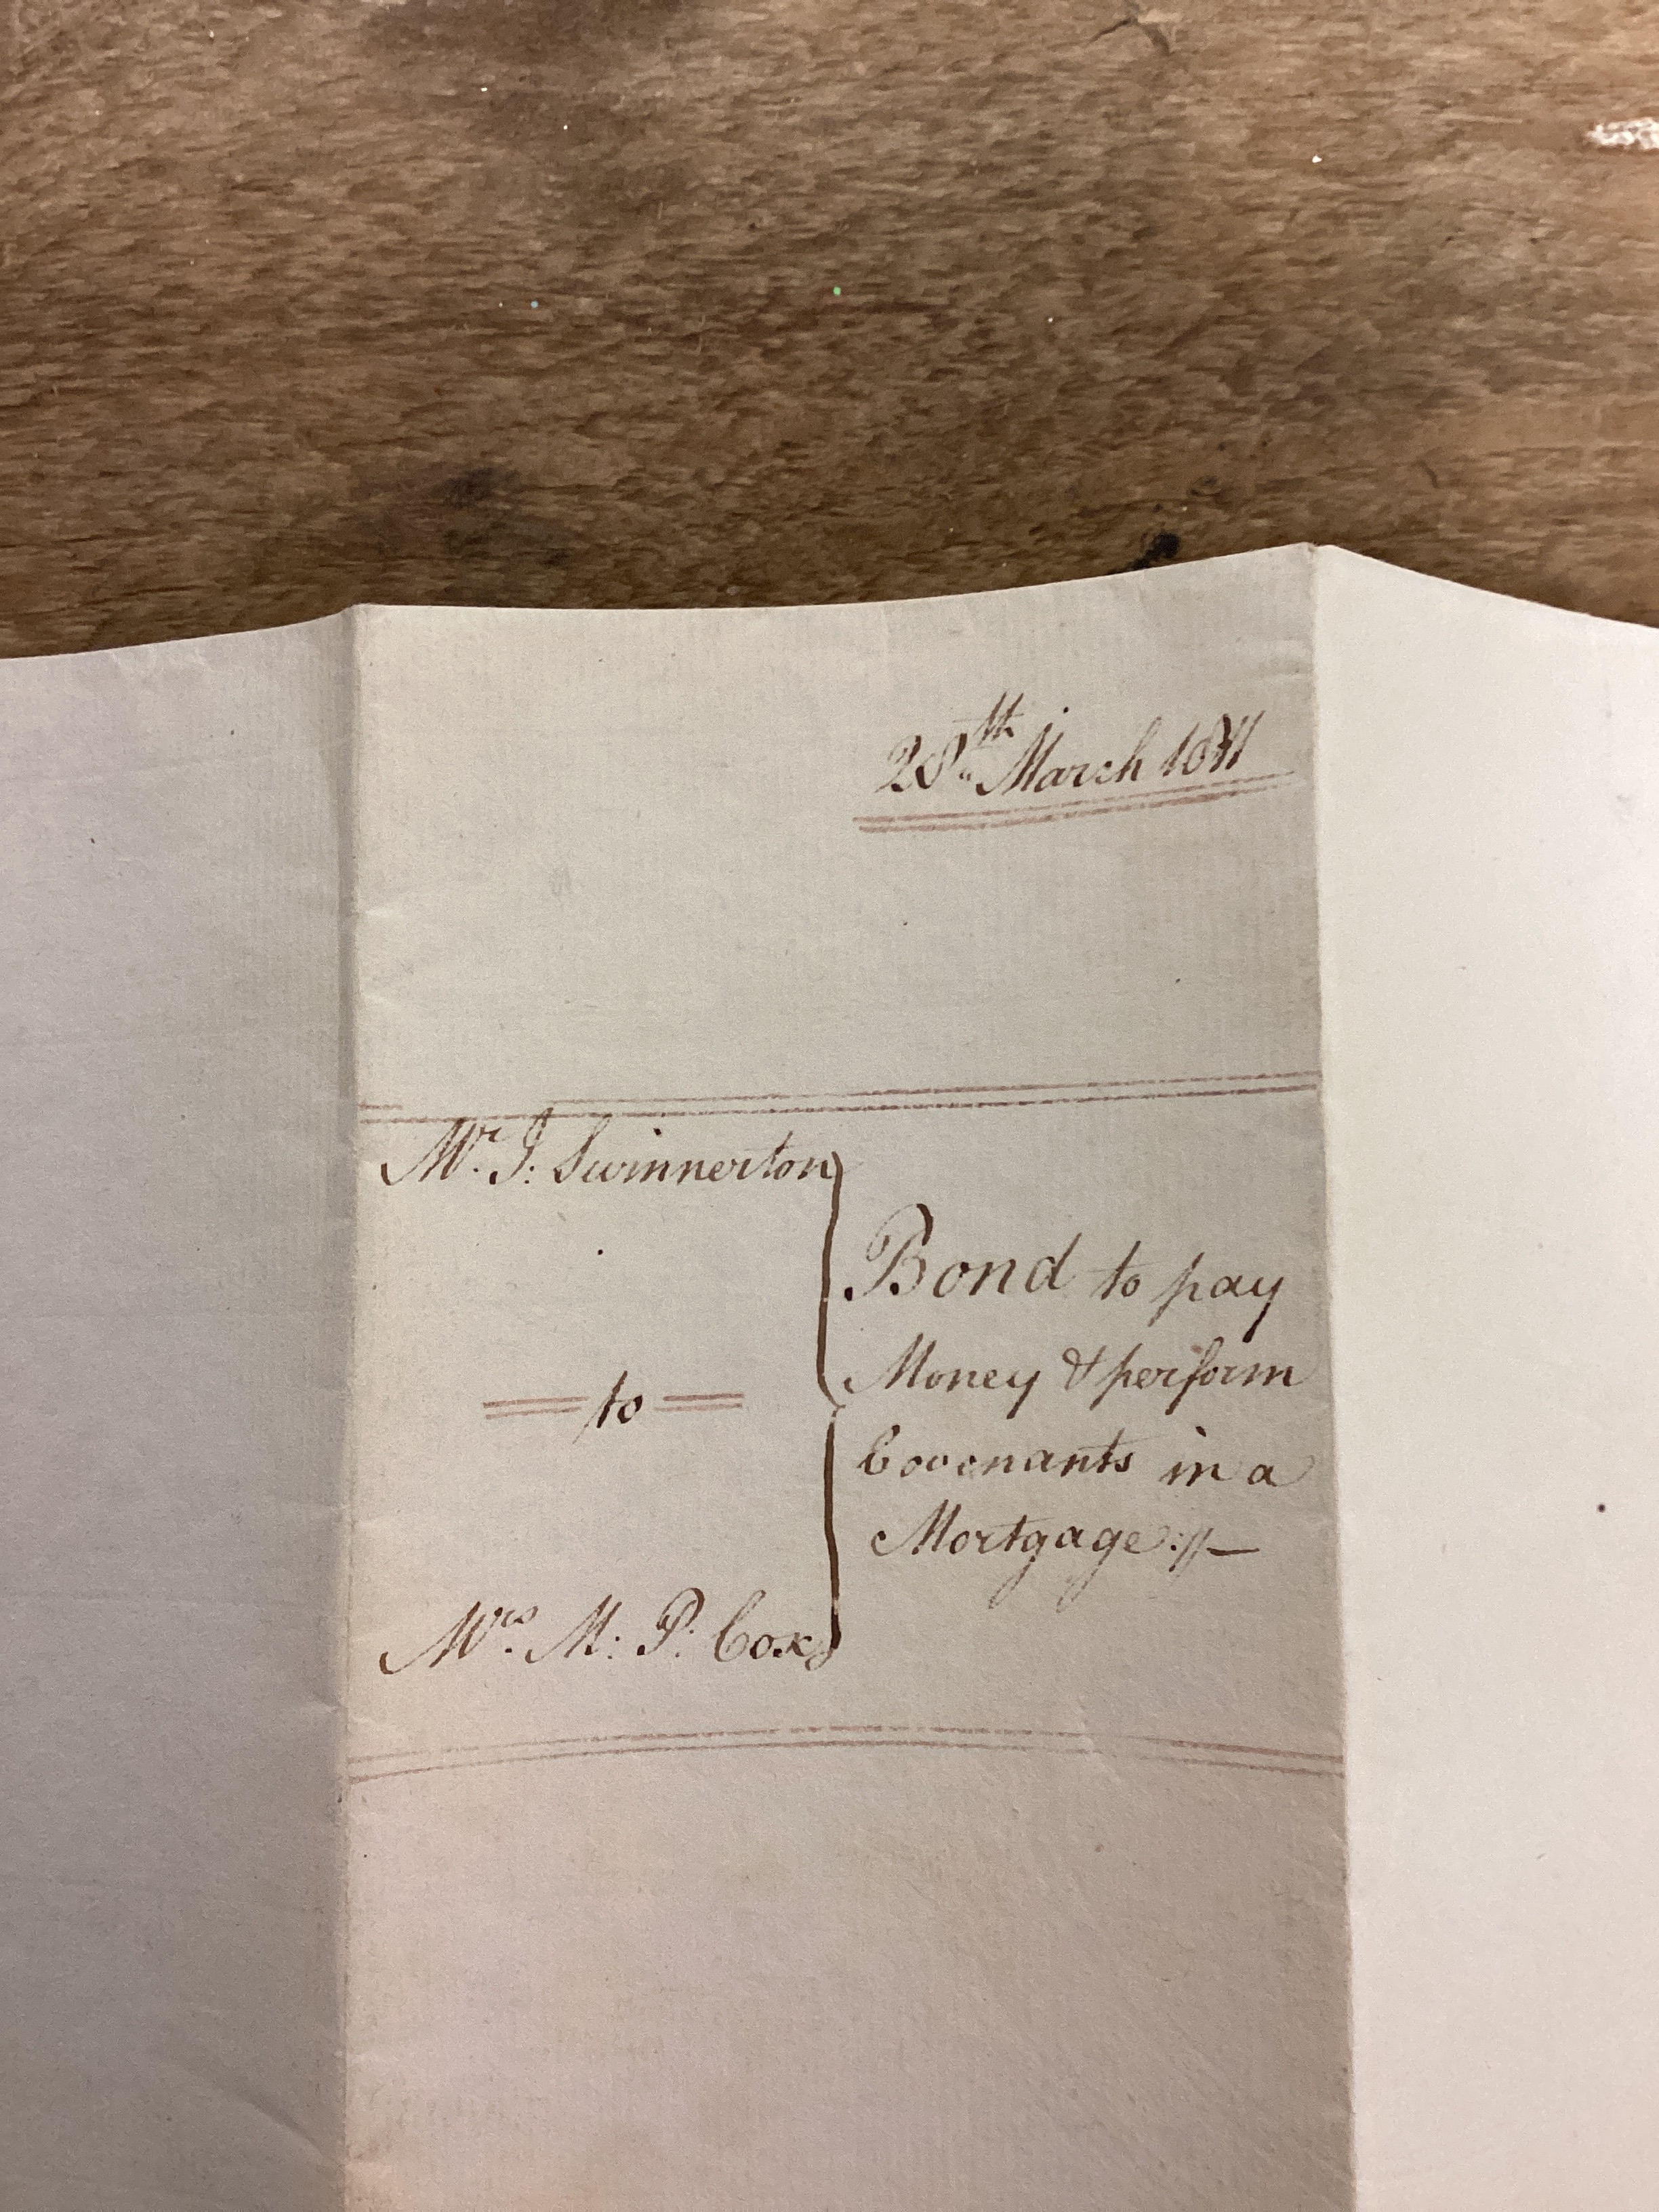 28th March 1811
Mr. J: Swinnerton
to
Mrs. M: P: Cox
Bond to pay
Money & perform
Covenants in a
Mortgage://—